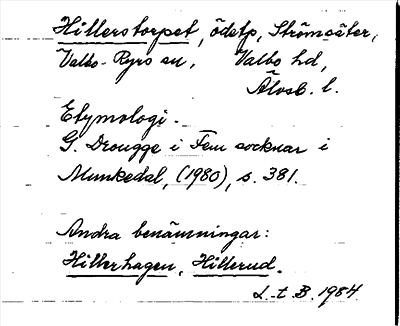 Hillerstorpet, ödetp, Strömsäter,
Valbo-Ryrs sn, Valbo hd,
Älvsb. l.
Etymologi.
G. Drougge i Fem socknar i
Munkedal, (1980), s. 381.
Andra benämningar:
Hillerhagen, Hillerud.
L-t B. 1984.